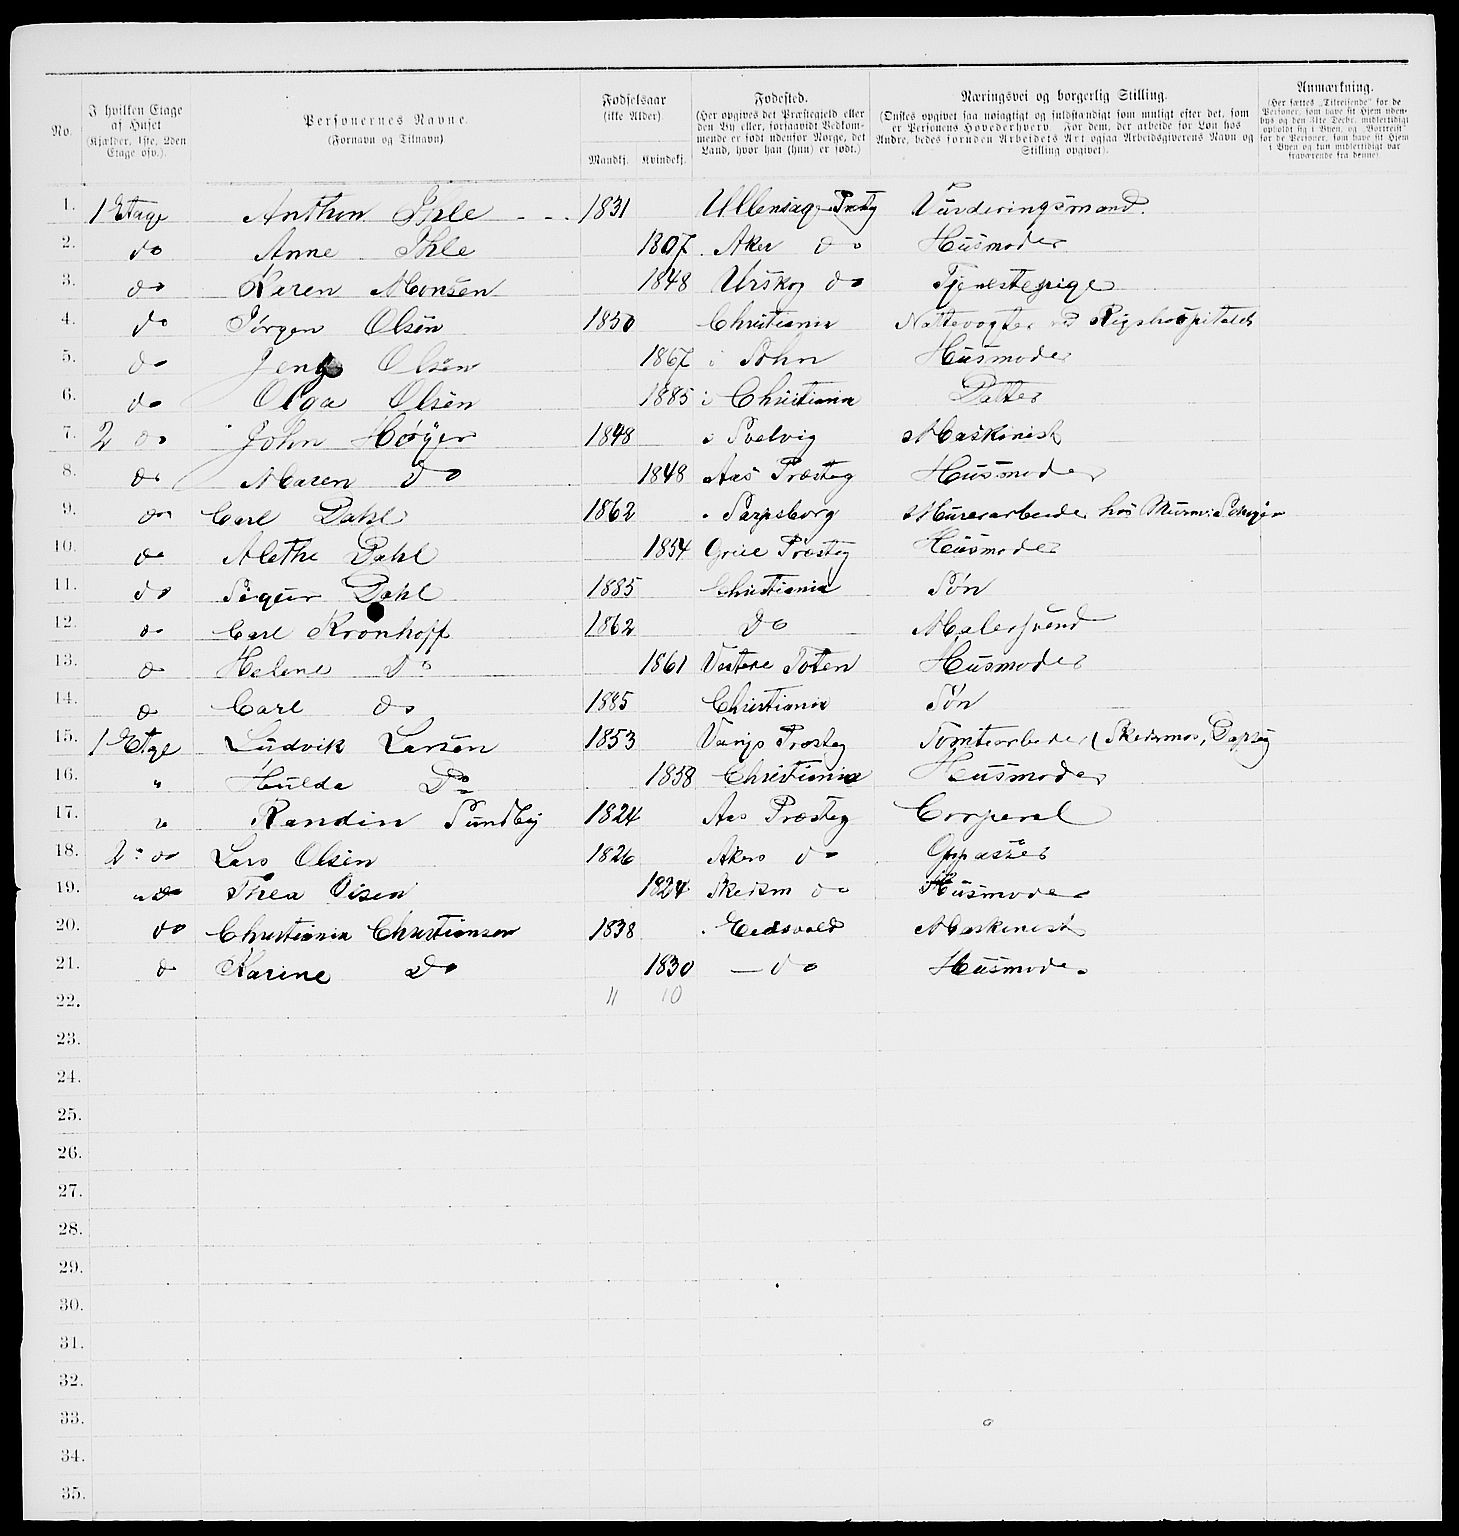 No.
I hvilken Etage af Huset (Kjælder, 1ste, 2den Etage osv.).
Personernes Navne. (Fornavn og Tilnavn)
Fødselsaar (ikke Alder) Mandkj. Kvindekj.
Fødested. (Her opgives det Præstegjeld eller den By eller, forsaavidt Vedkommende er født udenfor Norge, det Land, hvor han (hun) er født.)
Næringsvei og borgerlig Stilling. (Ønskes opgivet saa nøiagtigt og fuldstændigt som muligt efter det, som er Personens Hovederhverv. For dem, der arbeide for Løn hos Andre, bedes foruden Arbeidets Art ogsaa Arbeidsgiverens Navn og Stilling opgivet).
Anmærkning. (Her sættes „Tilreisende" for de Personer, som have sit Hjem udenbys og den 31te Decbr. midlertidigt opholdt sig i Byen, og „Bortreist" for de Personer, som have sit Hjem i Byen og kun midlertidigt var fraværende fra denne)
1. 1 Etage Anthon Ihle 1831 Ullensag Præstg Vurderingsmand.
2. do Anne Ihle 1807 Aker do Husmoder
3. do Karen Monsen 1848 Urskog do Tjenestepige
4. do Jørgen Olsen 1850 Christiania Nattevogter Rigshospitalet
5. do Olsen 1867 i Husmoder
6. do Olga Olsen 1885 i Christiania Datter
7. 2 do John Høyer 1848 Svelvig Maskinist
8. do Maren Do 1848 Aas Præsteg Husmoder
9. do Carl Dahl 1862 Sarpsborg Murerarbeider hos
10. do Alethe Dahl 1854 Grue Præsteg Husmoder
11. do Sigur Dahl 1885 Christiania Søn
12. do Carl Kronhoff 1862 Do Malersvend
13. do Helene Do 1861 Vestre Toten Husmoder
14. do Carl do 1885 Christiania Søn
15. 1 Etage Ludvik Larsen 1853 Præsteg Tomtearbeider
16. " Hulda Do 1858 Christiania Husmoder
17. " Randin Sundby 1824 Aas Præsteg Corperal
18. 2 do Lars Olsen 1826 Akers do Oppasser
19. " do Thea Olsen 1824 Skedsm do Husmoder
20. do Christiania Christiansen 1838 Eidsvold Maskinist
21. do Karine Do 1830 — do Husmoder
22. 11 10
23.
24.
25.
26.
27.
28.
29.
30.
31.
32.
33.
34.
35.